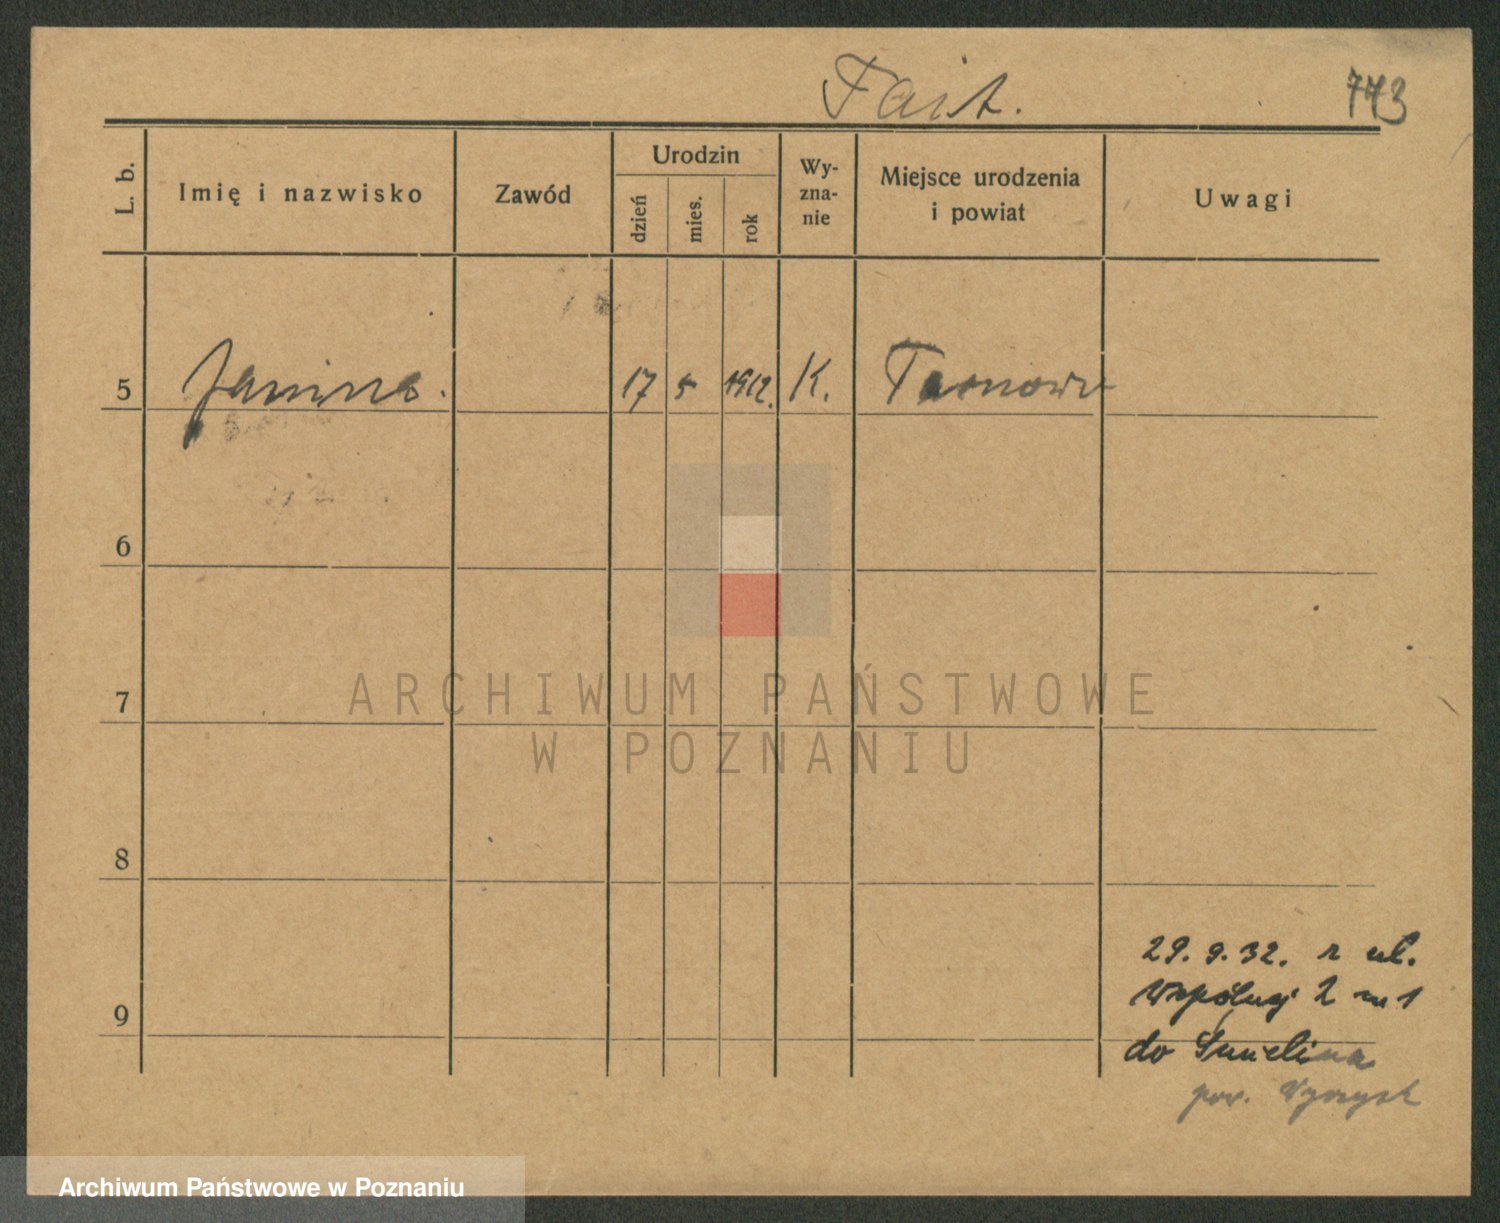 Fait.
773
L. b.
Imię i nazwisko
Zawód
Urodzin
dzień
mies.
rok
Wy-
zna-
nie
Miejsce urodzenia
i powiat
Uwagi
5 Janina. 17 5 1912. K. Tarnowo
6
7
8
9
29. 9. 32. z ul.
Wspólnej 2 m 1
do Śmielina
pow. Wyrzysk
ARCHIWUM PAŃSTWOWE
W POZNANIU
Archiwum Państwowe w Poznaniu